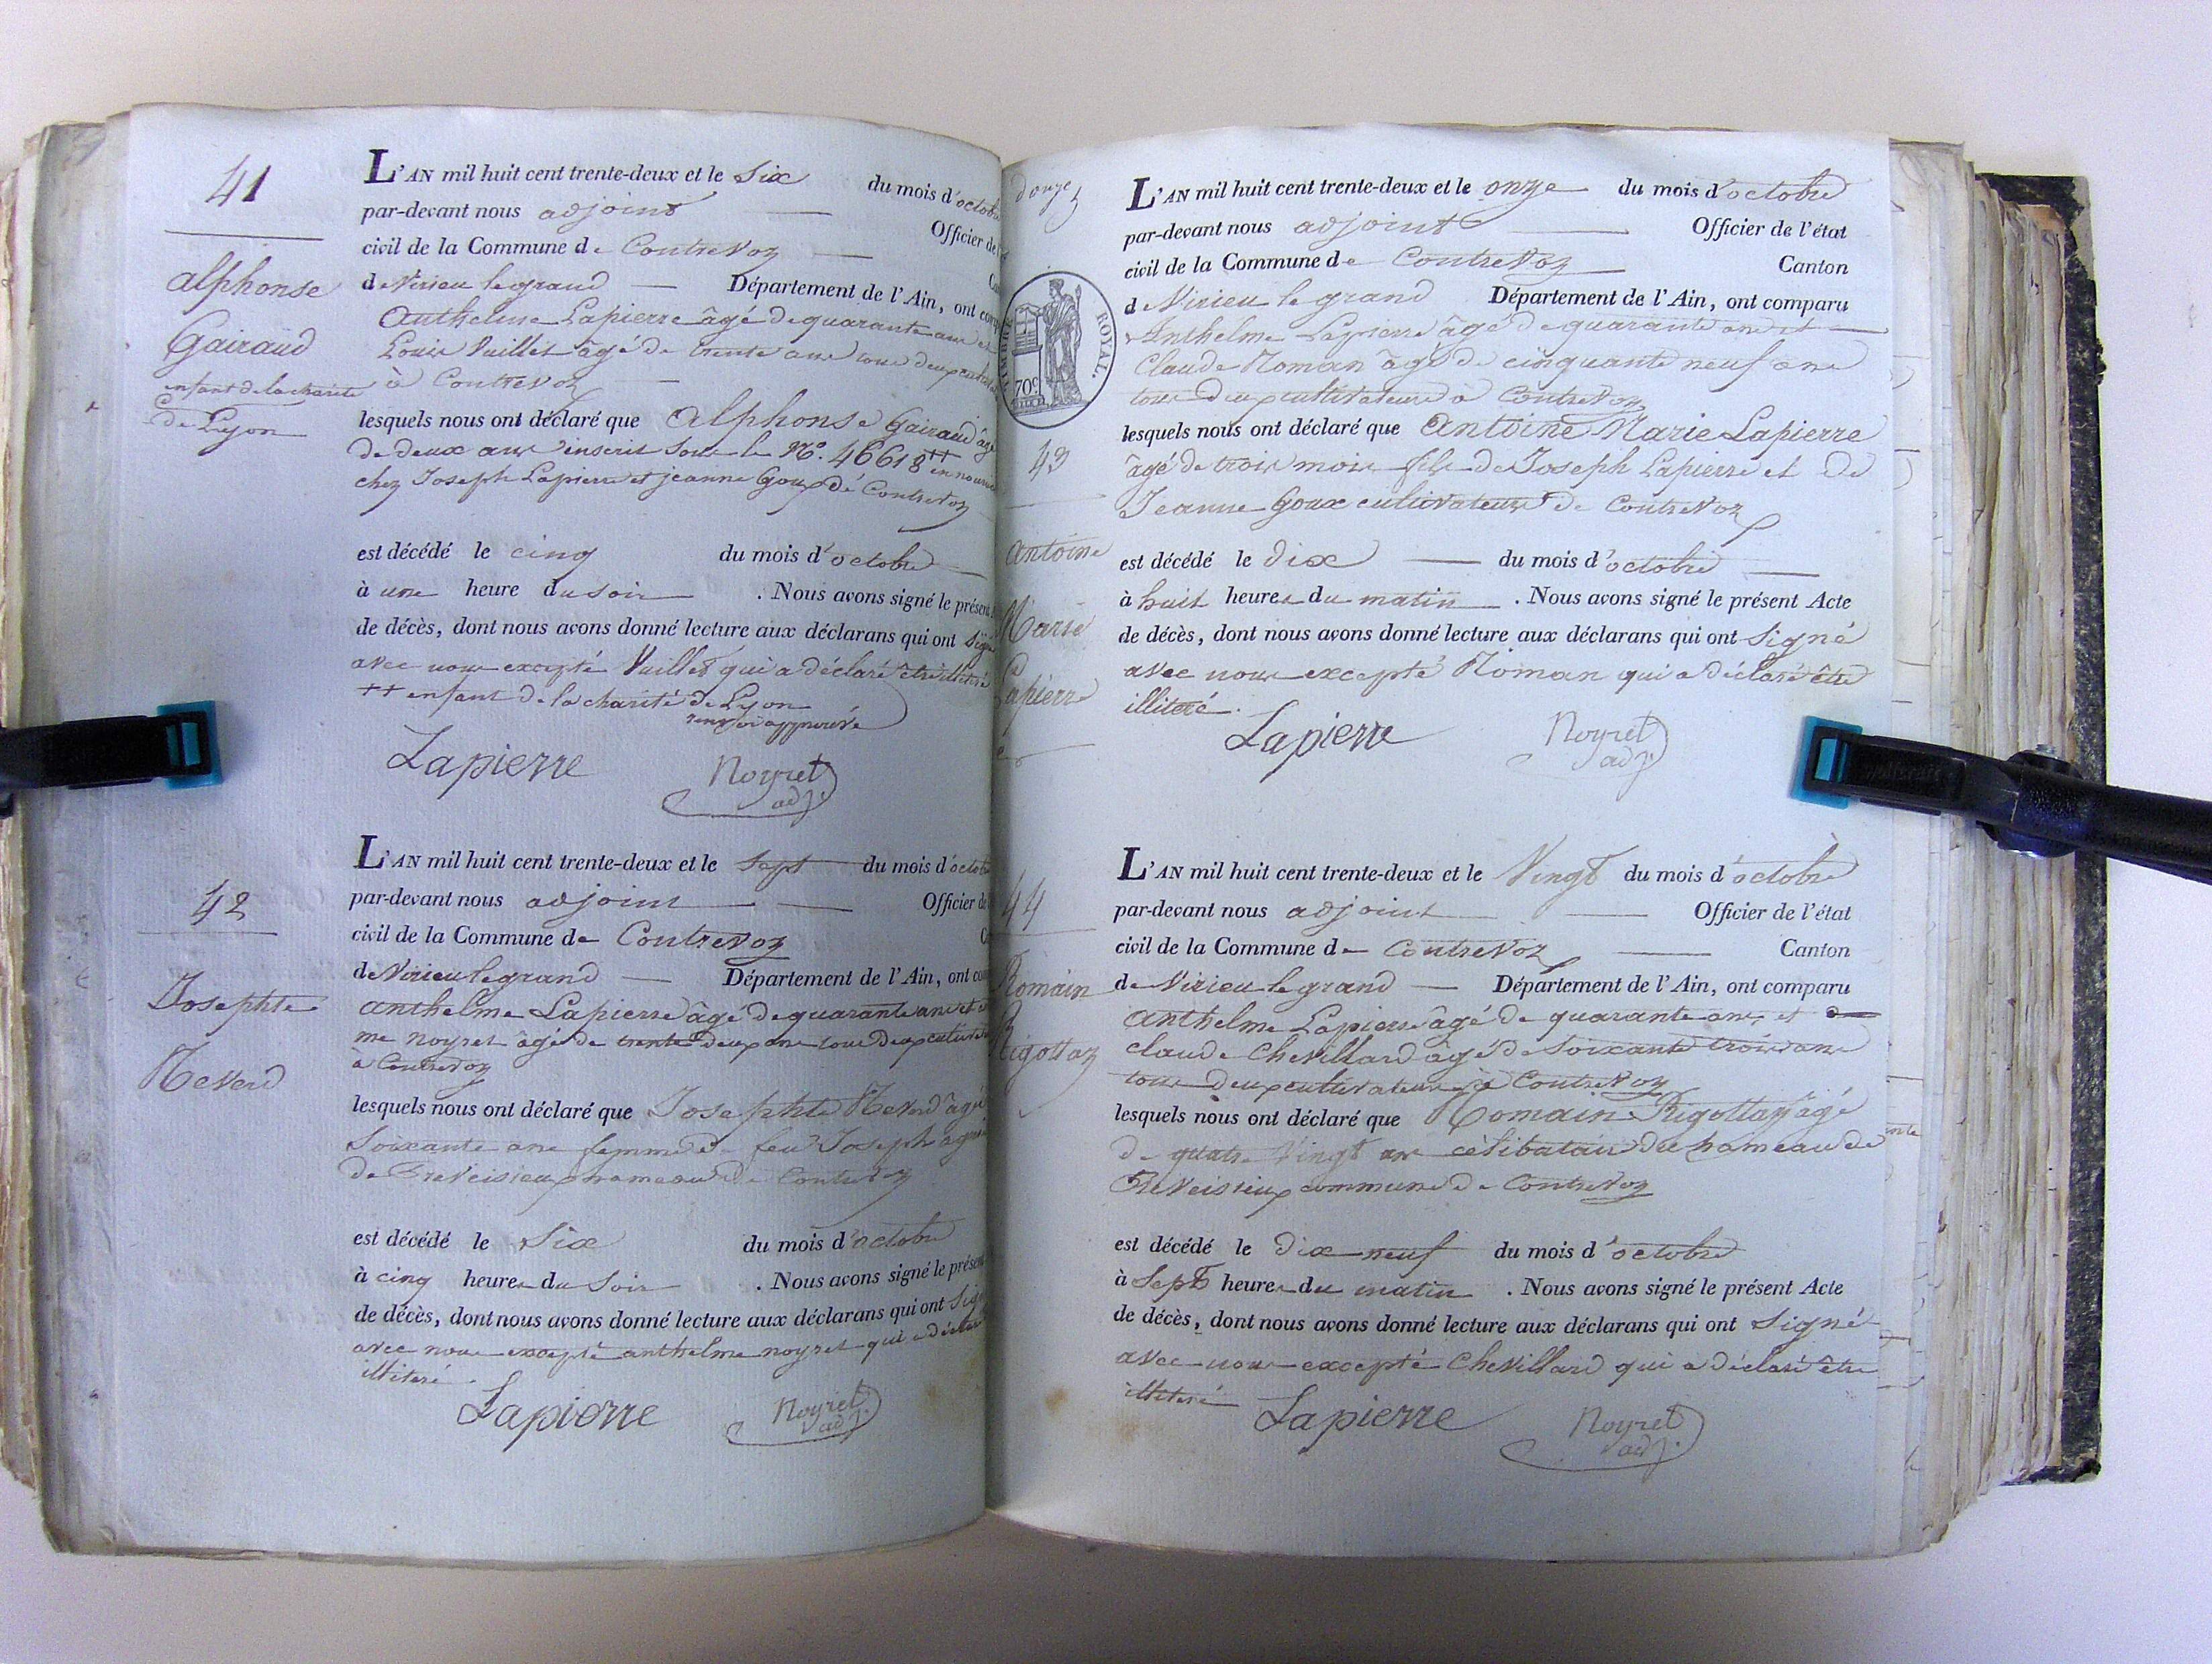 41
alphonse
Gairaud
enfant de la charité
de Lyon
L'AN mil huit cent trente-deux et le Six du mois d'octob
par-devant nous adjoint Officier de
civil de la Commune de Contrevoz
de Virieu le grand Département de l'Ain, ont comp
Anthelme Lapierre âgé de quarante ans et
Louis Vuillet âgé de trente ans tous deux
à Contrevoz
lesquels nous ont déclaré que Alphonse Gairaud âgé
de deux ans inscrit sous le No. 46618 ++ en nourrice
chez Joseph Lapierre et jeanne Goux de Contrevoz
est décédé le cinq du mois d'octobre
à une heure du soir . Nous avons signé le présent
de décès, dont nous avons donné lecture aux déclarans qui ont Signé
avec nous excepté Vuillet qui a déclaré être illiteré
++ enfant de la charité de Lyon
renvoi approuvé
Lapierre Noyret
adj.
42
Josephte
Reverd
L'AN mil huit cent trente-deux et le Sept du mois d'octob
par-devant nous adjoint Officier de
civil de la Commune de Contrevoz
de Virieu le grand Département de l'Ain, ont com
anthelme Lapierre âgé de quarante ans et
me noyret âgé de trente deux ans tous deux
à Contrevoz
lesquels nous ont déclaré que Josephte Reverd âgé
Soixante ans femme de feu Joseph
de Preveissieu hameau de Contrevoz
est décédé le Six du mois d'octobre
à cinq heures du Soir . Nous avons signé le présent
de décès, dont nous avons donné lecture aux déclarans qui ont Sig
avec nous excepté anthelme noyret qui a déclaré
illiteré .
Lapierre Noyret
adj.
douze
TIMBRE ROYAL.
70c
43
antoine
Marie
Lapierre
L'AN mil huit cent trente-deux et le onze du mois d'octobre
par-devant nous adjoint Officier de l'état
civil de la Commune de Contrevoz Canton
de Virieu le grand Département de l'Ain, ont comparu
Anthelme Lapierre âgé de quarante ans et
Claude Roman âgé de cinquante neuf ans
tous deux cultivateurs à Contrevoz
lesquels nous ont déclaré que Antoine Marie Lapierre
âgé de trois mois fils de Joseph Lapierre et de
Jeanne Goux cultivateurs de Contrevoz
est décédé le dix du mois d'octobre
à huit heures du matin . Nous avons signé le présent Acte
de décès, dont nous avons donné lecture aux déclarans qui ont Signé
avec nous excepté Roman qui a déclaré être
illiteré .
Lapierre Noyret
adj.
44
Romain
Rigottaz
L'AN mil huit cent trente-deux et le Vingt du mois d'octobre
par-devant nous adjoint Officier de l'état
civil de la Commune de Contrevoz Canton
de Virieu le grand Département de l'Ain, ont comparu
anthelme Lapierre âgé de quarante ans, et
claude Chevillard âgé de Soixante trois ans
tous deux cultivateurs à Contrevoz
lesquels nous ont déclaré que Romain Rigottaz âgé
de quatre Vingt ans célibataire du hameau de
Preveissieux commune de Contrevoz
est décédé le dix neuf du mois d'octobre
à Sept heures du matin . Nous avons signé le présent Acte
de décès, dont nous avons donné lecture aux déclarans qui ont Signé
avec nous excepté Chevillard qui a déclaré être
illiteré
Lapierre Noyret
adj.